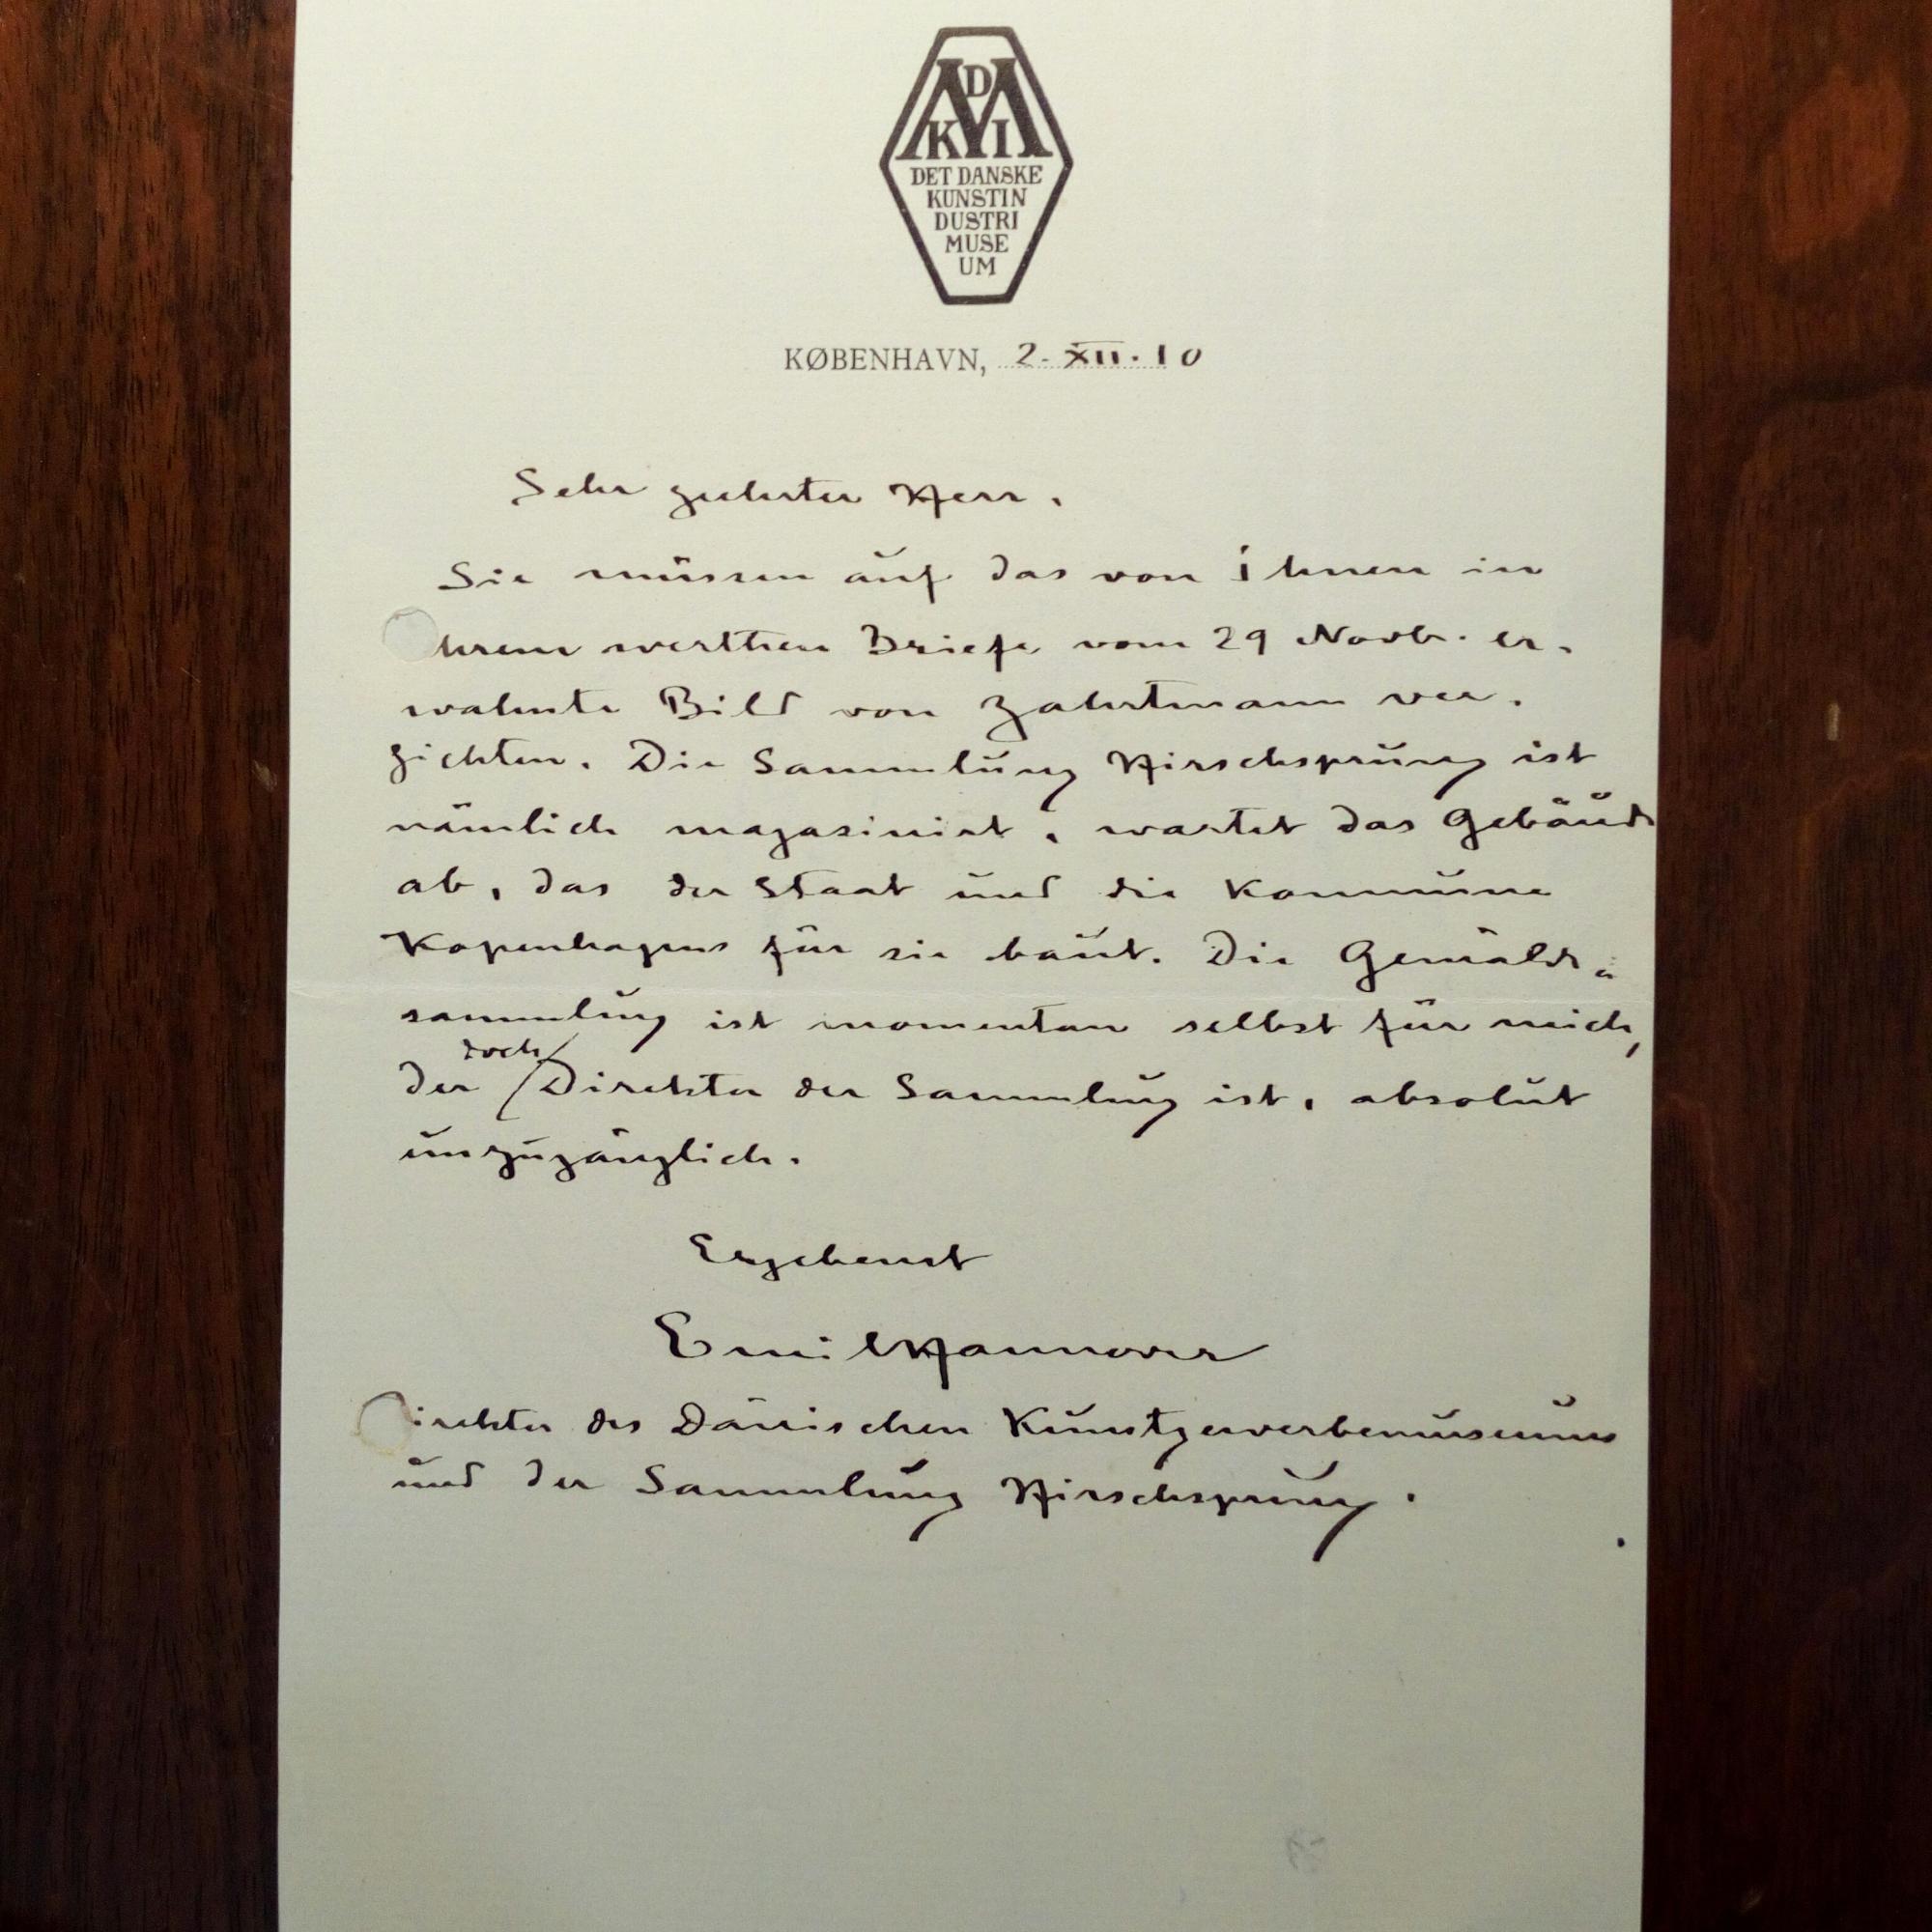 DKIM
DET DANSKE
KUNSTIN
DUSTRI
MUSE
UM
KØBENHAVN, 2. XII. 10
Sehr geehrter Herr,
Sie müssen auf das von ihnen in
hrem werthen Briefe vom 29 Novb. er-
wähnte Bild von Zahrtmann ver-
zichten. Die Sammlung Hirschsprung ist
nämlich magasiniert, wartet das Gebäude
ab, das der Staat und die Kommune
Kopenhagens für sie baut. Die Gemälde-
sammlung ist momentan selbst für mich,
der doch Direktor der Sammlung ist, absolut
unzugänglich.
Ergebenst
Emil Hannover
irektor des Dänischen Kunstgewerbemuseums
und der Sammlung Hirschsprung.